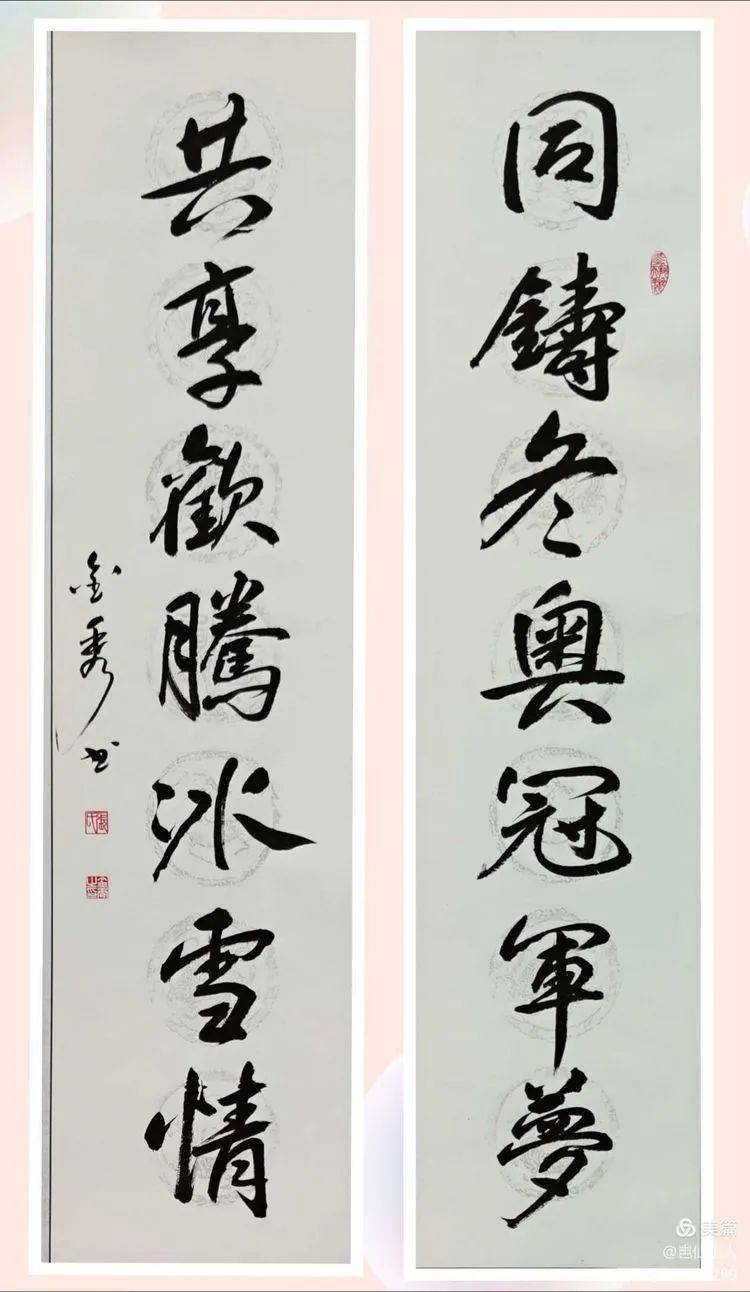 同鑄冬奧冠軍夢
共享歡騰冰雪情
金秀书
美篇